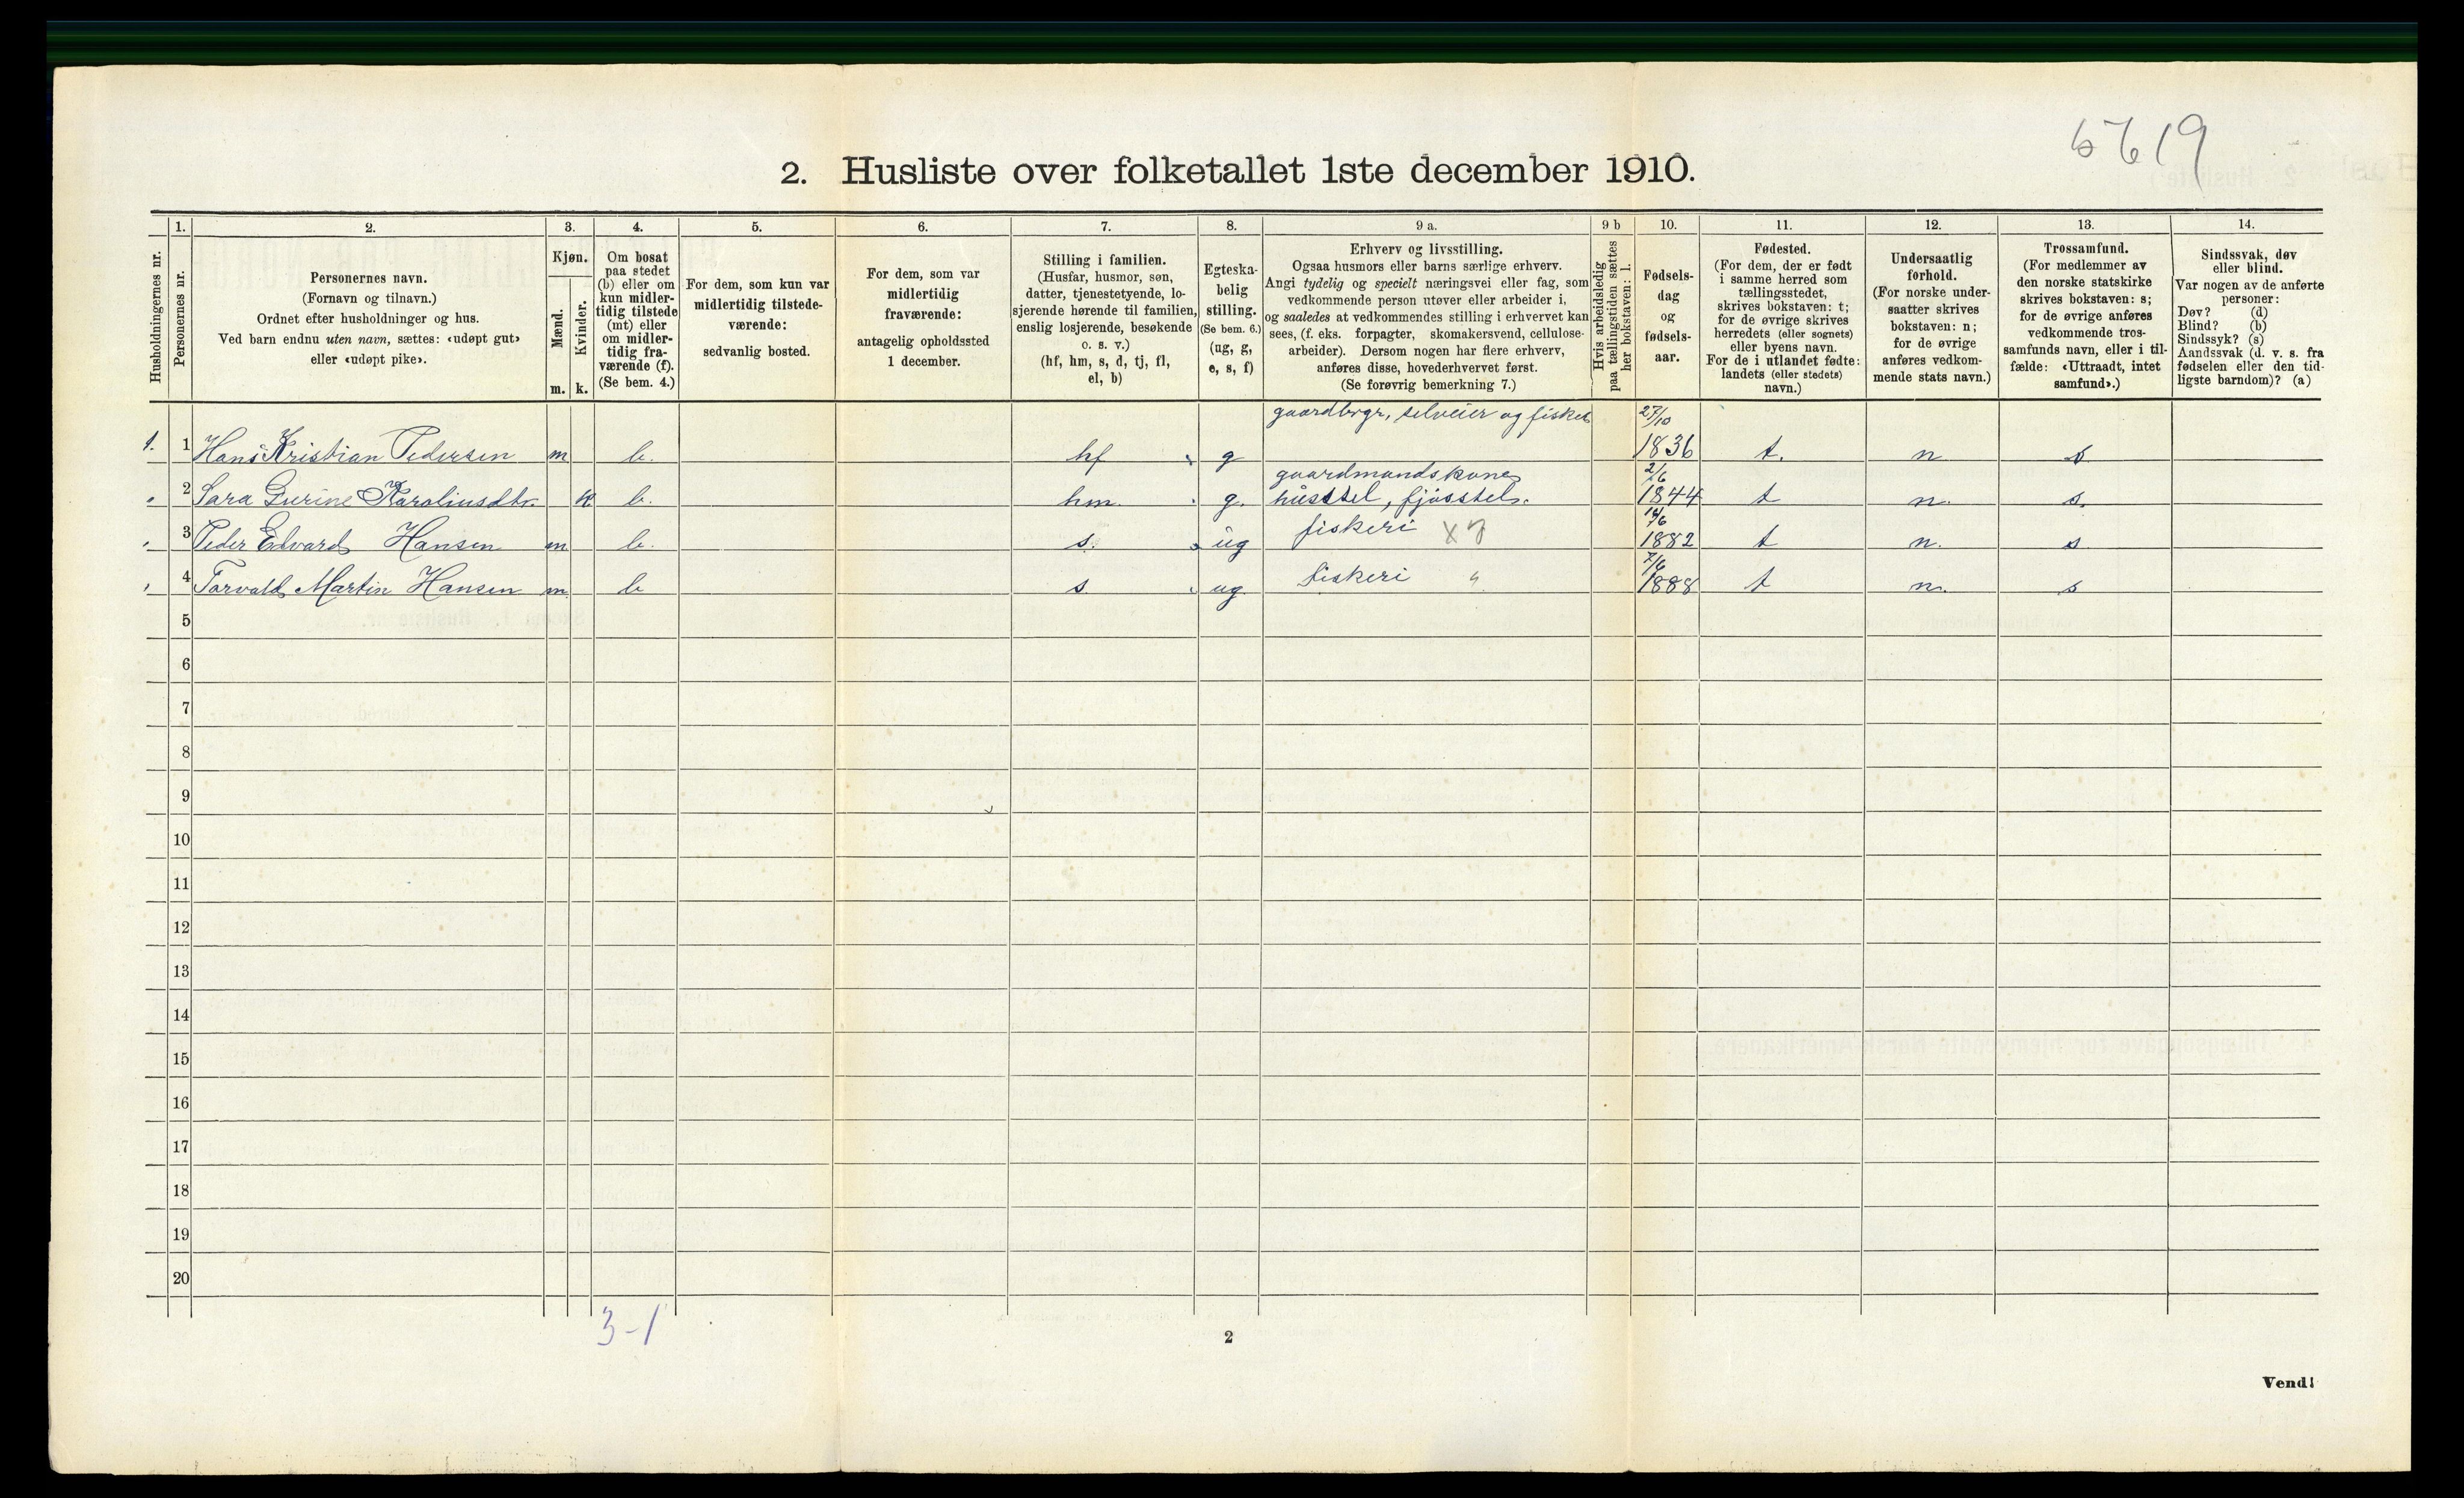 5619
2. Husliste over folketallet 1ste december 1910.
Husholdningernes nr.
1.
Personernes nr.
2.
Personernes navn.
(Fornavn og tilnavn.)
Ordnet efter husholdninger og hus.
Ved barn endnu uten navn, sættes: «udøpt gut»
eller «udøpt pike».
3.
Kjøn.
Mænd.
m.
Kvinder.
k.
4.
Om bosat
paa stedet
(b) eller om
kun midler-
tidig tilstede
(mt) eller
om midler-
tidig fra-
værende (f).
(Se bem. 4.)
5.
For dem, som kun var
midlertidig tilstede-
værende:
sedvanlig bosted.
6.
For dem, som var
midlertidig
fraværende:
antagelig opholdssted
1 december.
7.
Stilling i familien.
(Husfar, husmor, søn,
datter, tjenestetyende, lo-
sjerende hørende til familien,
enslig losjerende, besøkende
o. s. v.)
(hf, hm, s, d, tj, fl,
el, b)
8.
Egteska-
belig
stilling.
(Se bem. 6.)
(ug, g,
e, s, f)
9 a.
Erhverv og livsstilling.
Ogsaa husmors eller barns særlige erhverv.
Angi tydelig og specielt næringsvei eller fag, som
vedkommende person utøver eller arbeider i,
og saaledes at vedkommendes stilling i erhvervet kan
sees, (f. eks. forpagter, skomakersvend, cellulose-
arbeider). Dersom nogen har flere erhverv,
anføres disse, hovederhvervet først.
(Se forøvrig bemerkning 7.)
9 b
Hvis arbeidsledig
paa tællingstiden sættes
her bokstaven: l.
10.
Fødsels-
dag
og
fødsels-
aar.
11.
Fødested.
(For dem, der er født
i samme herred som
tællingsstedet,
skrives bokstaven: t;
for de øvrige skrives
herredets (eller sognets)
eller byens navn.
For de i utlandet fødte:
landets (eller stedets)
navn.)
12.
Undersaatlig
forhold.
(For norske under-
saatter skrives
bokstaven: n;
for de øvrige
anføres vedkom-
mende stats navn.)
13.
Trossamfund.
(For medlemmer av
den norske statskirke
skrives bokstaven: s;
for de øvrige anføres
vedkommende tros-
samfunds navn, eller i til-
fælde: «Uttraadt, intet
samfund».)
14.
Sindssvak, døv
eller blind.
Var nogen av de anførte
personer:
Døv? (d)
Blind? (b)
Sindssyk? (s)
Aandssvak (d. v. s. fra
fødselen eller den tid-
ligste barndom)? (a)
gaardbrgr, selveier og fisker 27/10
1. 1 Hans Kristian Pedersen m b. hf g 1836 t. n s
gaardmandskone 2/6
2 Sara Gurine Karoliusdtr. k b. hm. g. husstel, fjøsstel. 1844 t n. s.
3 Peder Edvard Hansen m b. s. ug fiskeri 1882 t n. s
7/6
4 Torvald Martin Hansen m. b s. ug. fiskeri " 1888 t n. s
5
6
7
8
9
10
11
12
13
14
15
16
17
18
19
20
3-1
2
Vend!